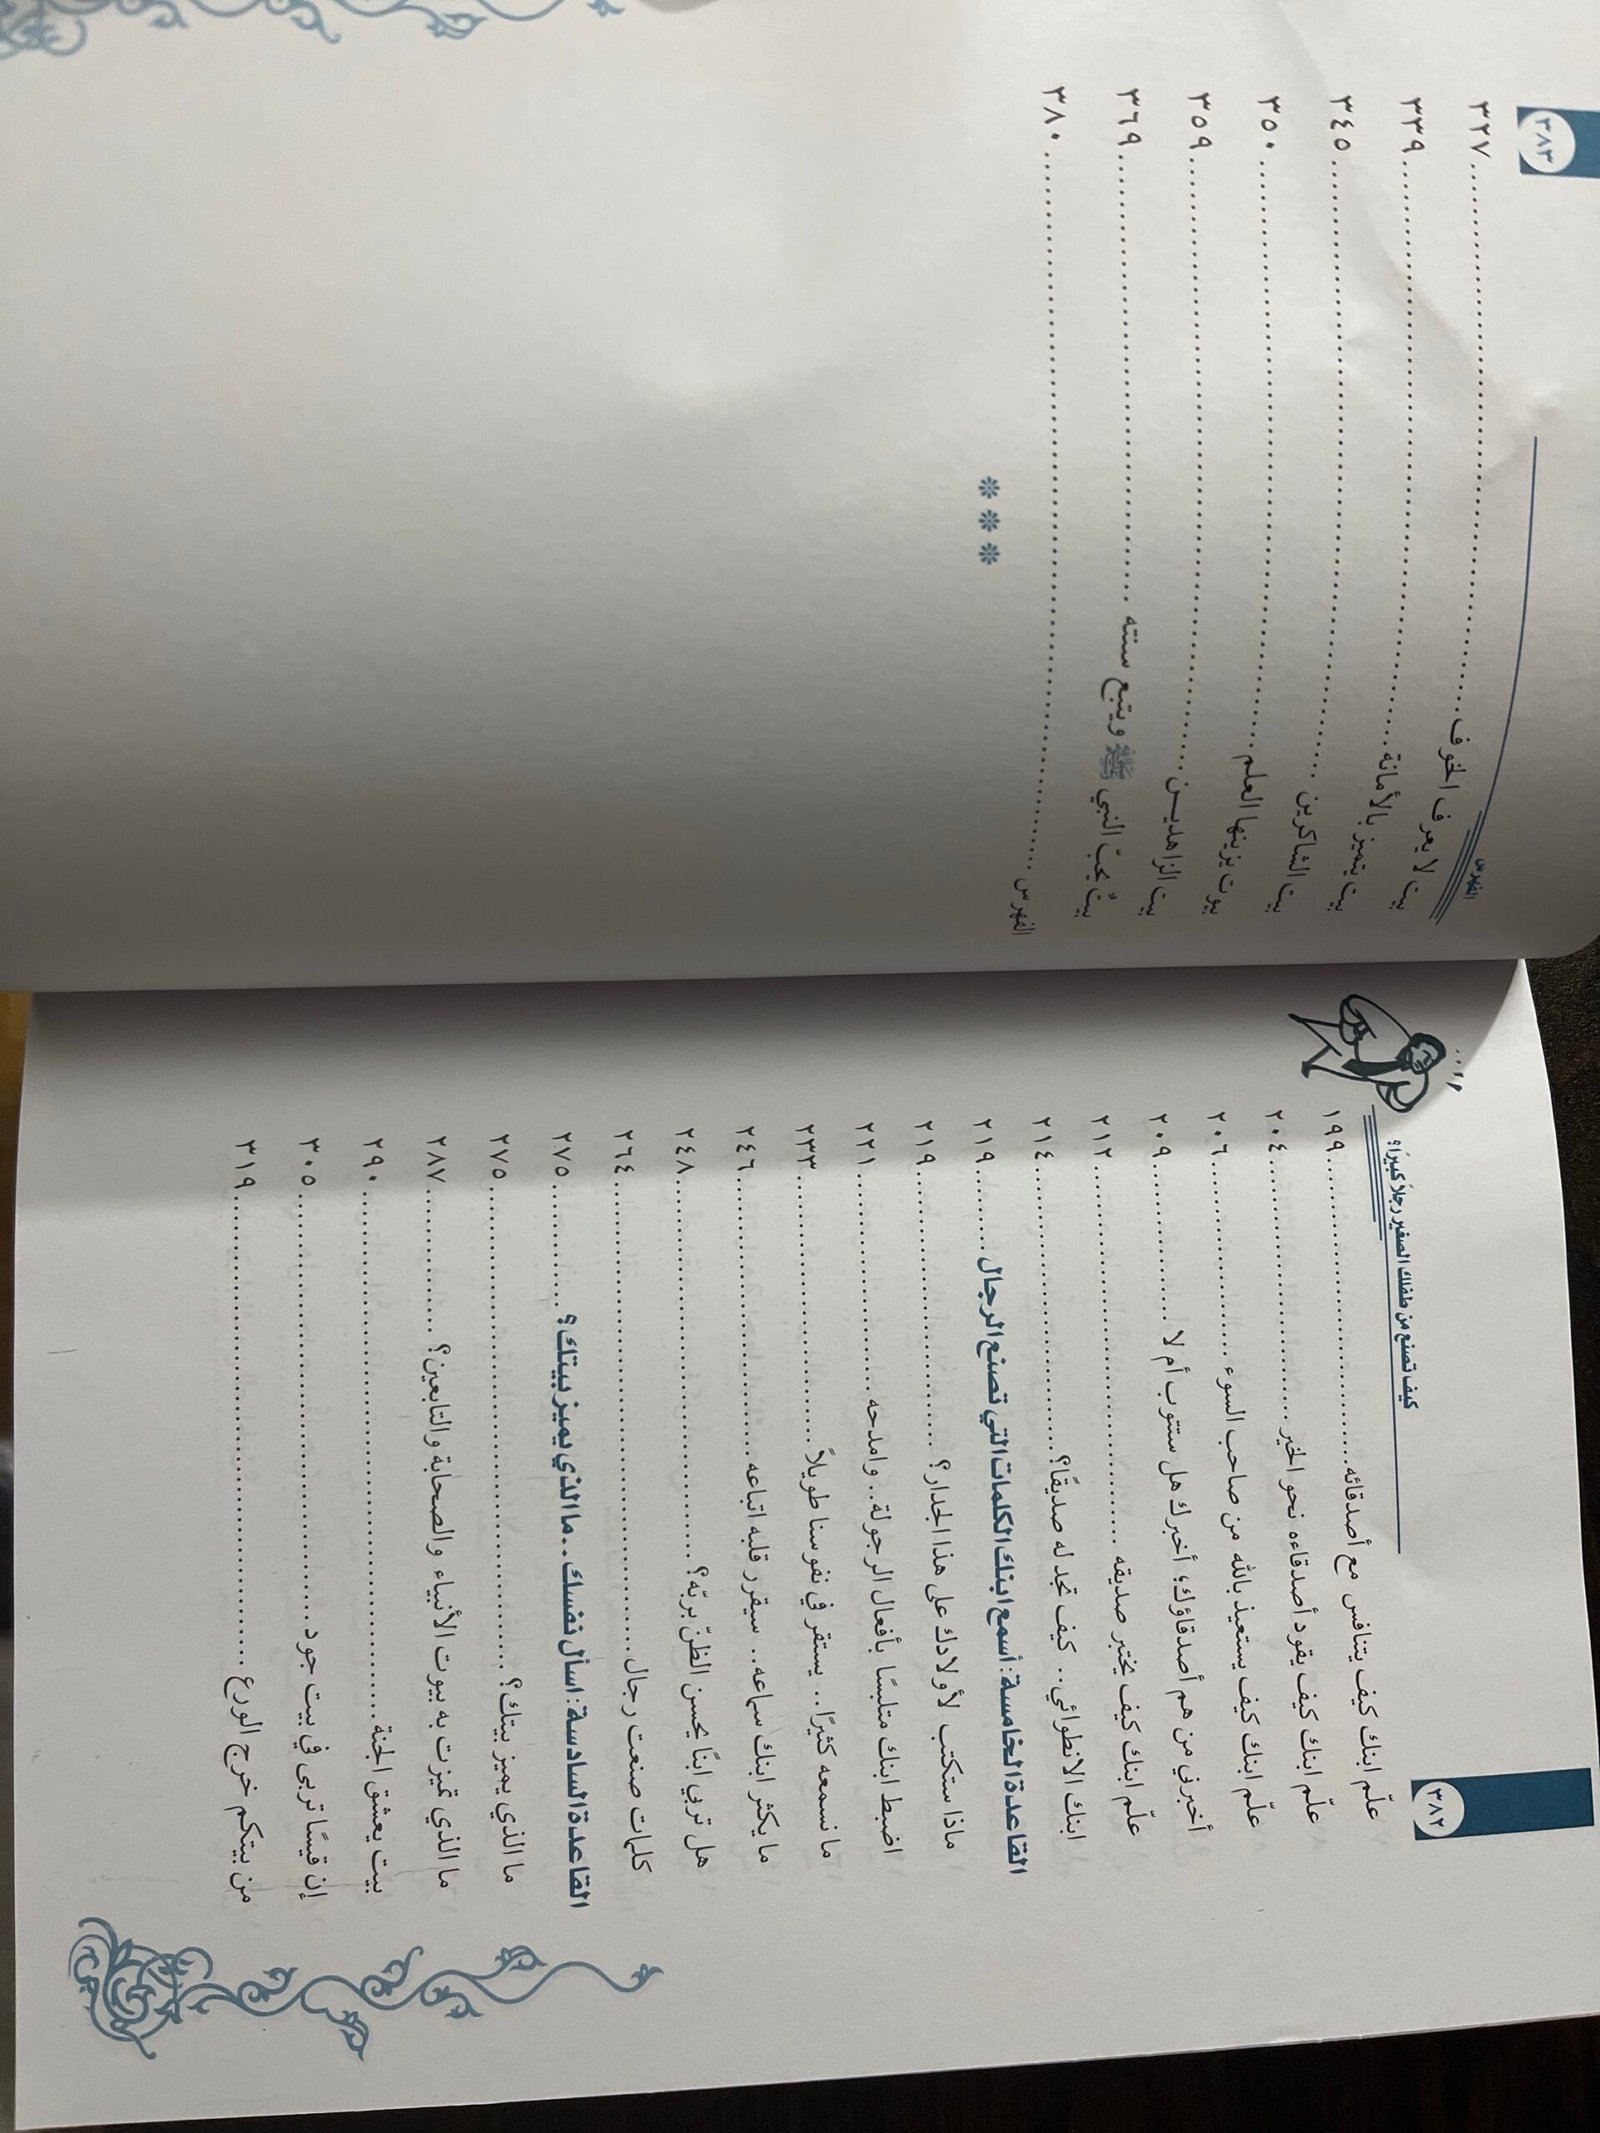 ٣٨٢
كيف تصنع من طفلك الصغير رجلاً كبيرًا؟
علّم ابنك كيف يتنافس مع أصدقائه ١٩٩
علّم ابنك كيف يقود أصدقاءه نحو الخير ٢٠٤
علّم ابنك كيف يستعيذ بالله من صاحب السوء ٢٠٦
أخبرني من هم أصدقاؤك؛ أخبرك هل ستتوب أم لا ٢٠٩
علّم ابنك كيف يختبر صديقه ٢١٢
ابنك الانطوائي.. كيف تجد له صديقًا؟ ٢١٤
القاعدة الخامسة: أسمع ابنك الكلمات التي تصنع الرجال ٢١٩
ماذا ستكتب لأولادك على هذا الجدار؟ ٢١٩
اضبط ابنك متلبسًا بأفعال الرجولة.. وامدحه ٢٢١
ما نسمعه كثيرًا.. يستقر في نفوسنا طويلاً ٢٣٣
ما يكثر ابنك سماعه.. سيقرر قلبه اتباعه ٢٤٦
هل تربي ابنًا يحسن الظنّ بربّه؟ ٢٤٨
كلمات صنعت رجال ٢٦٤
القاعدة السادسة: اسأل نفسك.. ما الذي يميز بيتك؟ ٢٧٥
ما الذي يميز بيتك؟ ٢٧٥
ما الذي تميزت به بيوت الأنبياء والصحابة والتابعين؟ ٢٨٧
بيت يعشق الجنة ٢٩٠
إن قيسًا تربى في بيت جود ٣٠٥
من بيتكم خرج الورع ٣١٩
الفهرس
٣٨٣
بيت لا يعرف الخوف ٣٢٧
بيت يتميز بالأمانة ٣٣٩
بيت الشاكرين ٣٤٥
بيوت يزينها العلم ٣٥٠
بيت الزاهديـن ٣٥٩
بيتٌ يحبّ النبي ﷺ ويتبع سنته ٣٦٩
الفهرس ٣٨٠